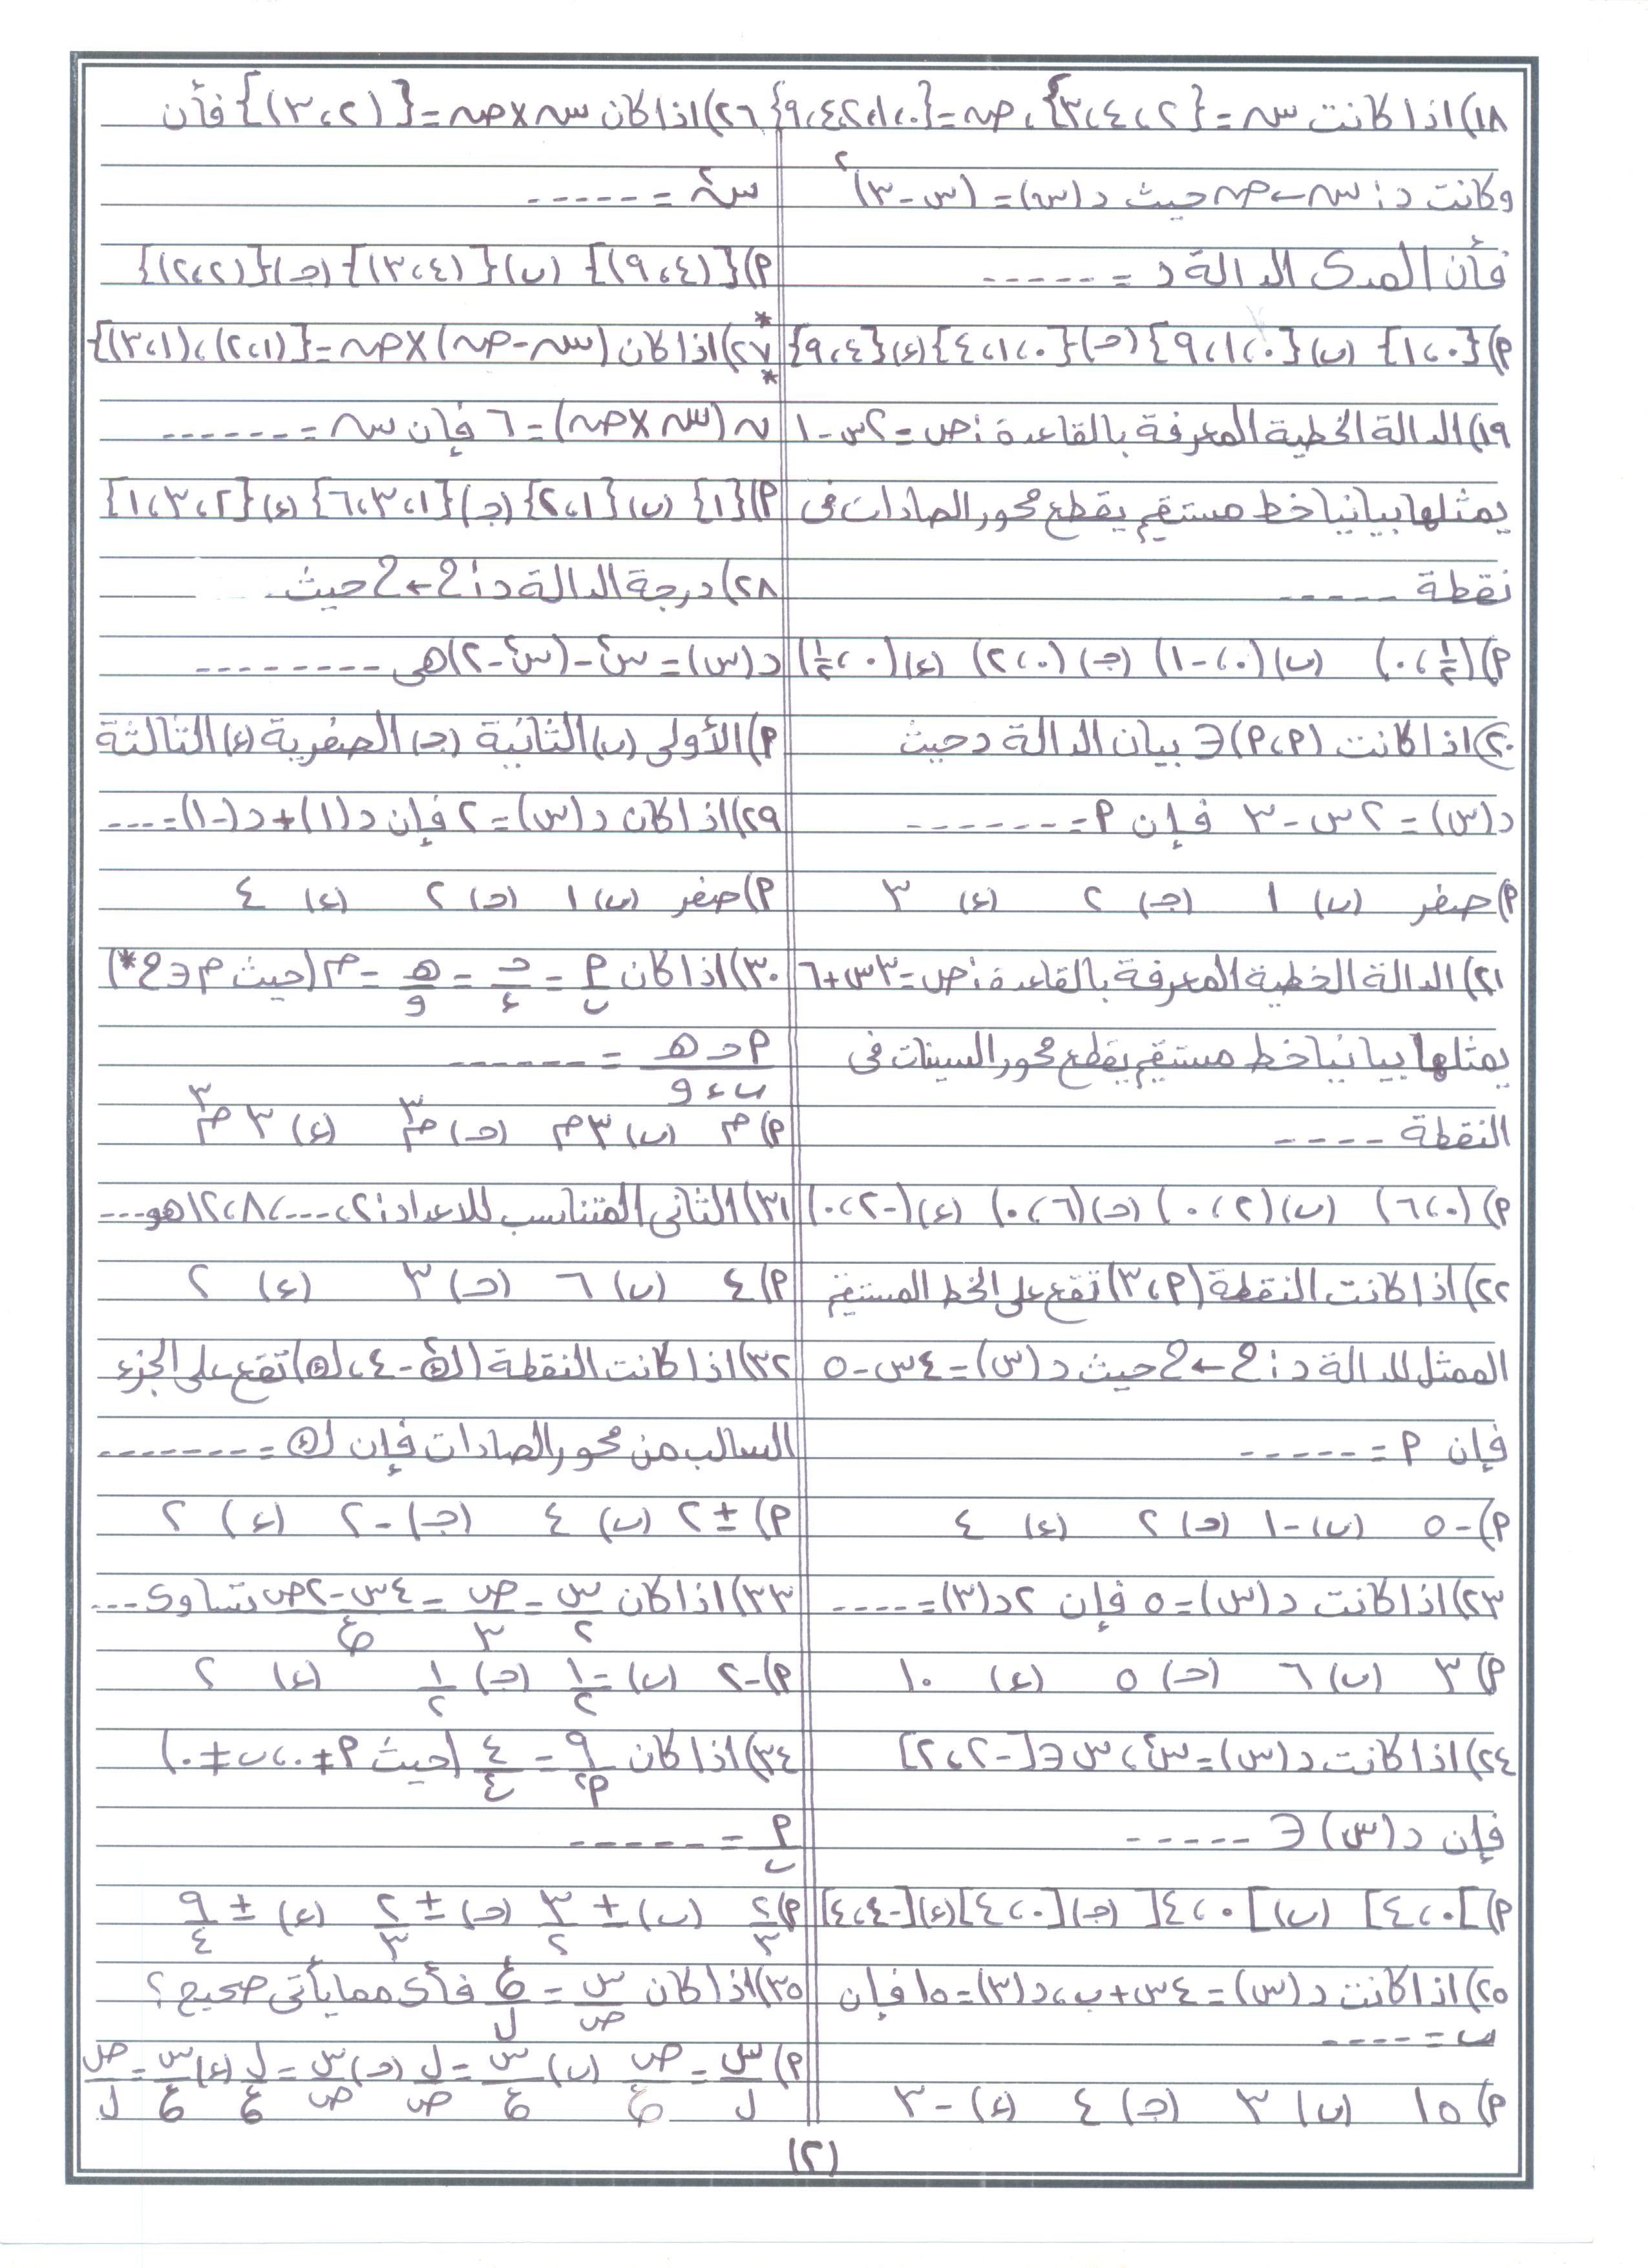 ١٨) اذا كانت س = {٣،٤،٢} ، ص = {٩،٤،٢،١،٠}
وكانت د: س ← ص حيث د(س) = (س - ٣)٢
فأن المدى الدالة د = -----
٩) {١،٠} (ب) {٩،١،٠} (حـ) {٤،١،٠} (ء) {٩،٤}
١٩) الدالة الخطية المعرفة بالقاعدة: ص = ٢س - ١
يمثلها بيانيا خط مستقيم يقطع محور الصادات فى
نقطة -----
٩) (١/٢ ، ٠) (ب) (٠ ، -١) (جـ) (٠ ، ٢) (ء) (٠ ، ١/٢)
٢٠) اذا كانت (٩،٩) ∈ بيان الدالة د حيث
د(س) = ٢س - ٣ فإن ٩ = ------
٩) صفر (ب) ١ (جـ) ٢ (ء) ٣
٢١) الدالة الخطية المعرفة بالقاعدة: ص = ٣س + ٦
يمثلها بيانيا خط مستقيم يقطع محور السينات فى
النقطة ----
٩) (٦،٠) (ب) (٠،٢) (حـ) (٠،٦) (ء) (-٠،٢)
٢٢) اذا كانت النقطة (٣،٩) تقع على الخط المستقيم
الممثل للدالة د: ع ← ع حيث د(س) = ٤س - ٥
فإن ٩ = -----
٩) -٥ (ب) -١ (حـ) ٢ (ء) ٤
٢٣) اذا كانت د(س) = ٥ فإن ٢د(٣) = ----
٩) ٣ (ب) ٦ (حـ) ٥ (ء) ١٠
٢٤) اذا كانت د(س) = س٢، س ∈ [-٢،٢]
فإن د(س) ∈ -----
٩) ]٤،٠] (ب) ]٤،٠[ (جـ) [٤،٠] (ء) [-٤،٤]
٢٥) اذا كانت د(س) = ٤س + ب، د(٣) = ١٥ فإن
ب = ----
٩) ١٥ (ب) ٣ (جـ) ٤ (ء) -٣
٢٦) اذا كان س × ص = {(٣،٢)} فأن
س٢ = -----
٩) {(٩،٤)} (ب) {(٣،٤)} (جـ) {(٢،٢)}
*٢٧) اذا كان (س - ص) × ص = {(٢،١)،(٣،١)}
* ن(س × ص) = ٦ فإن س = ------
٩) {١} (ب) {٢،١} (جـ) {٦،٣،١} (ء) {١،٣،٢}
٢٨) درجة الدالة د: ع ← ع حيث
د(س) = س٢ - (س٢ - ٢) هى --------
٩) الأولى (ب) الثانية (جـ) الصفرية (ء) الثالثة
٢٩) اذا كان د(س) = ٢ فإن د(١) + د(-١) = ----
٩) صفر (ب) ١ (حـ) ٢ (ء) ٤
٣٠) اذا كان ٩/ب = حـ/ء = هـ/و = م (حيث م ∈ ع*)
٩ حـ هـ / ب ء و = ------
٩) م (ب) ٣م (حـ) م٣ (ء) ٣م٣
٣١) الثانى المتناسب للاعداد: ٢، ...، ٨، ١٢ هو ---
٩) ٤ (ب) ٦ (حـ) ٣ (ء) ٢
٣٢) اذا كانت النقطة (ك٢ - ٤، ك) تقع على الجزء
السالب من محور الصادات فإن ك = --------
٩) ± ٢ (ب) ٤ (جـ) -٢ (ء) ٢
٣٣) اذا كان س/٢ = ص/٣ = ٤س-٢ص/ع تساوى ---
٩) -٢ (ب) -١/٢ (جـ) ١/٢ (ء) ٢
٣٤) اذا كان ٩/٩٢ = ٤/٤ (حيث ٩ ≠ ٠، ب ≠ ٠)
٩/ب = ------
٩) ٢/٣ (ب) ± ٣/٢ (حـ) ± ٢/٣ (ء) ± ٩/٤
٣٥) اذا كان س/ص = ع/ل فأى مما يأتى صحيح؟
٩) س/ل = ص/ع (ب) س/ع = ل/ص (حـ) س/ص = ل/ع (ء) س/ع = ص/ل
(٢)